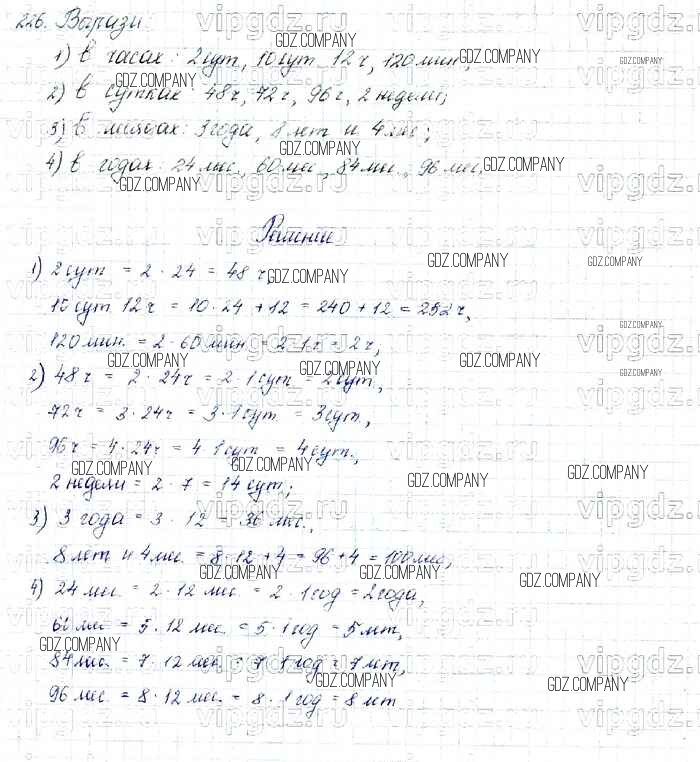 226. Вырази:
1) в часах: 2 сут, 10 сут 12 ч, 120 мин;
2) в сутках 48 ч, 72 ч, 96 ч, 2 недели;
3) в месяцах: 3 года, 8 лет и 4 мес;
4) в годах: 24 мес., 60 мес., 84 мес., 96 мес.
Решение
1) 2 сут = 2 · 24 = 48 ч,
10 сут 12 ч = 10 · 24 + 12 = 240 + 12 = 252 ч,
120 мин. = 2 · 60 мин. = 2 · 1 ч = 2 ч,
2) 48 ч = 2 · 24 ч = 2 · 1 сут = 2 сут,
72 ч = 3 · 24 ч = 3 · 1 сут = 3 сут,
96 ч = 4 · 24 ч = 4 · 1 сут = 4 сут.,
2 недели = 2 · 7 = 14 сут;
3) 3 года = 3 · 12 = 36 мес.,
8 лет и 4 мес. = 8 · 12 + 4 = 96 + 4 = 100 мес,
4) 24 мес. = 2 · 12 мес. = 2 · 1 год = 2 года,
60 мес = 5 · 12 мес. = 5 · 1 год = 5 лет,
84 мес. = 7 · 12 мес. = 7 · 1 год = 7 лет,
96 мес. = 8 · 12 мес. = 8 · 1 год = 8 лет